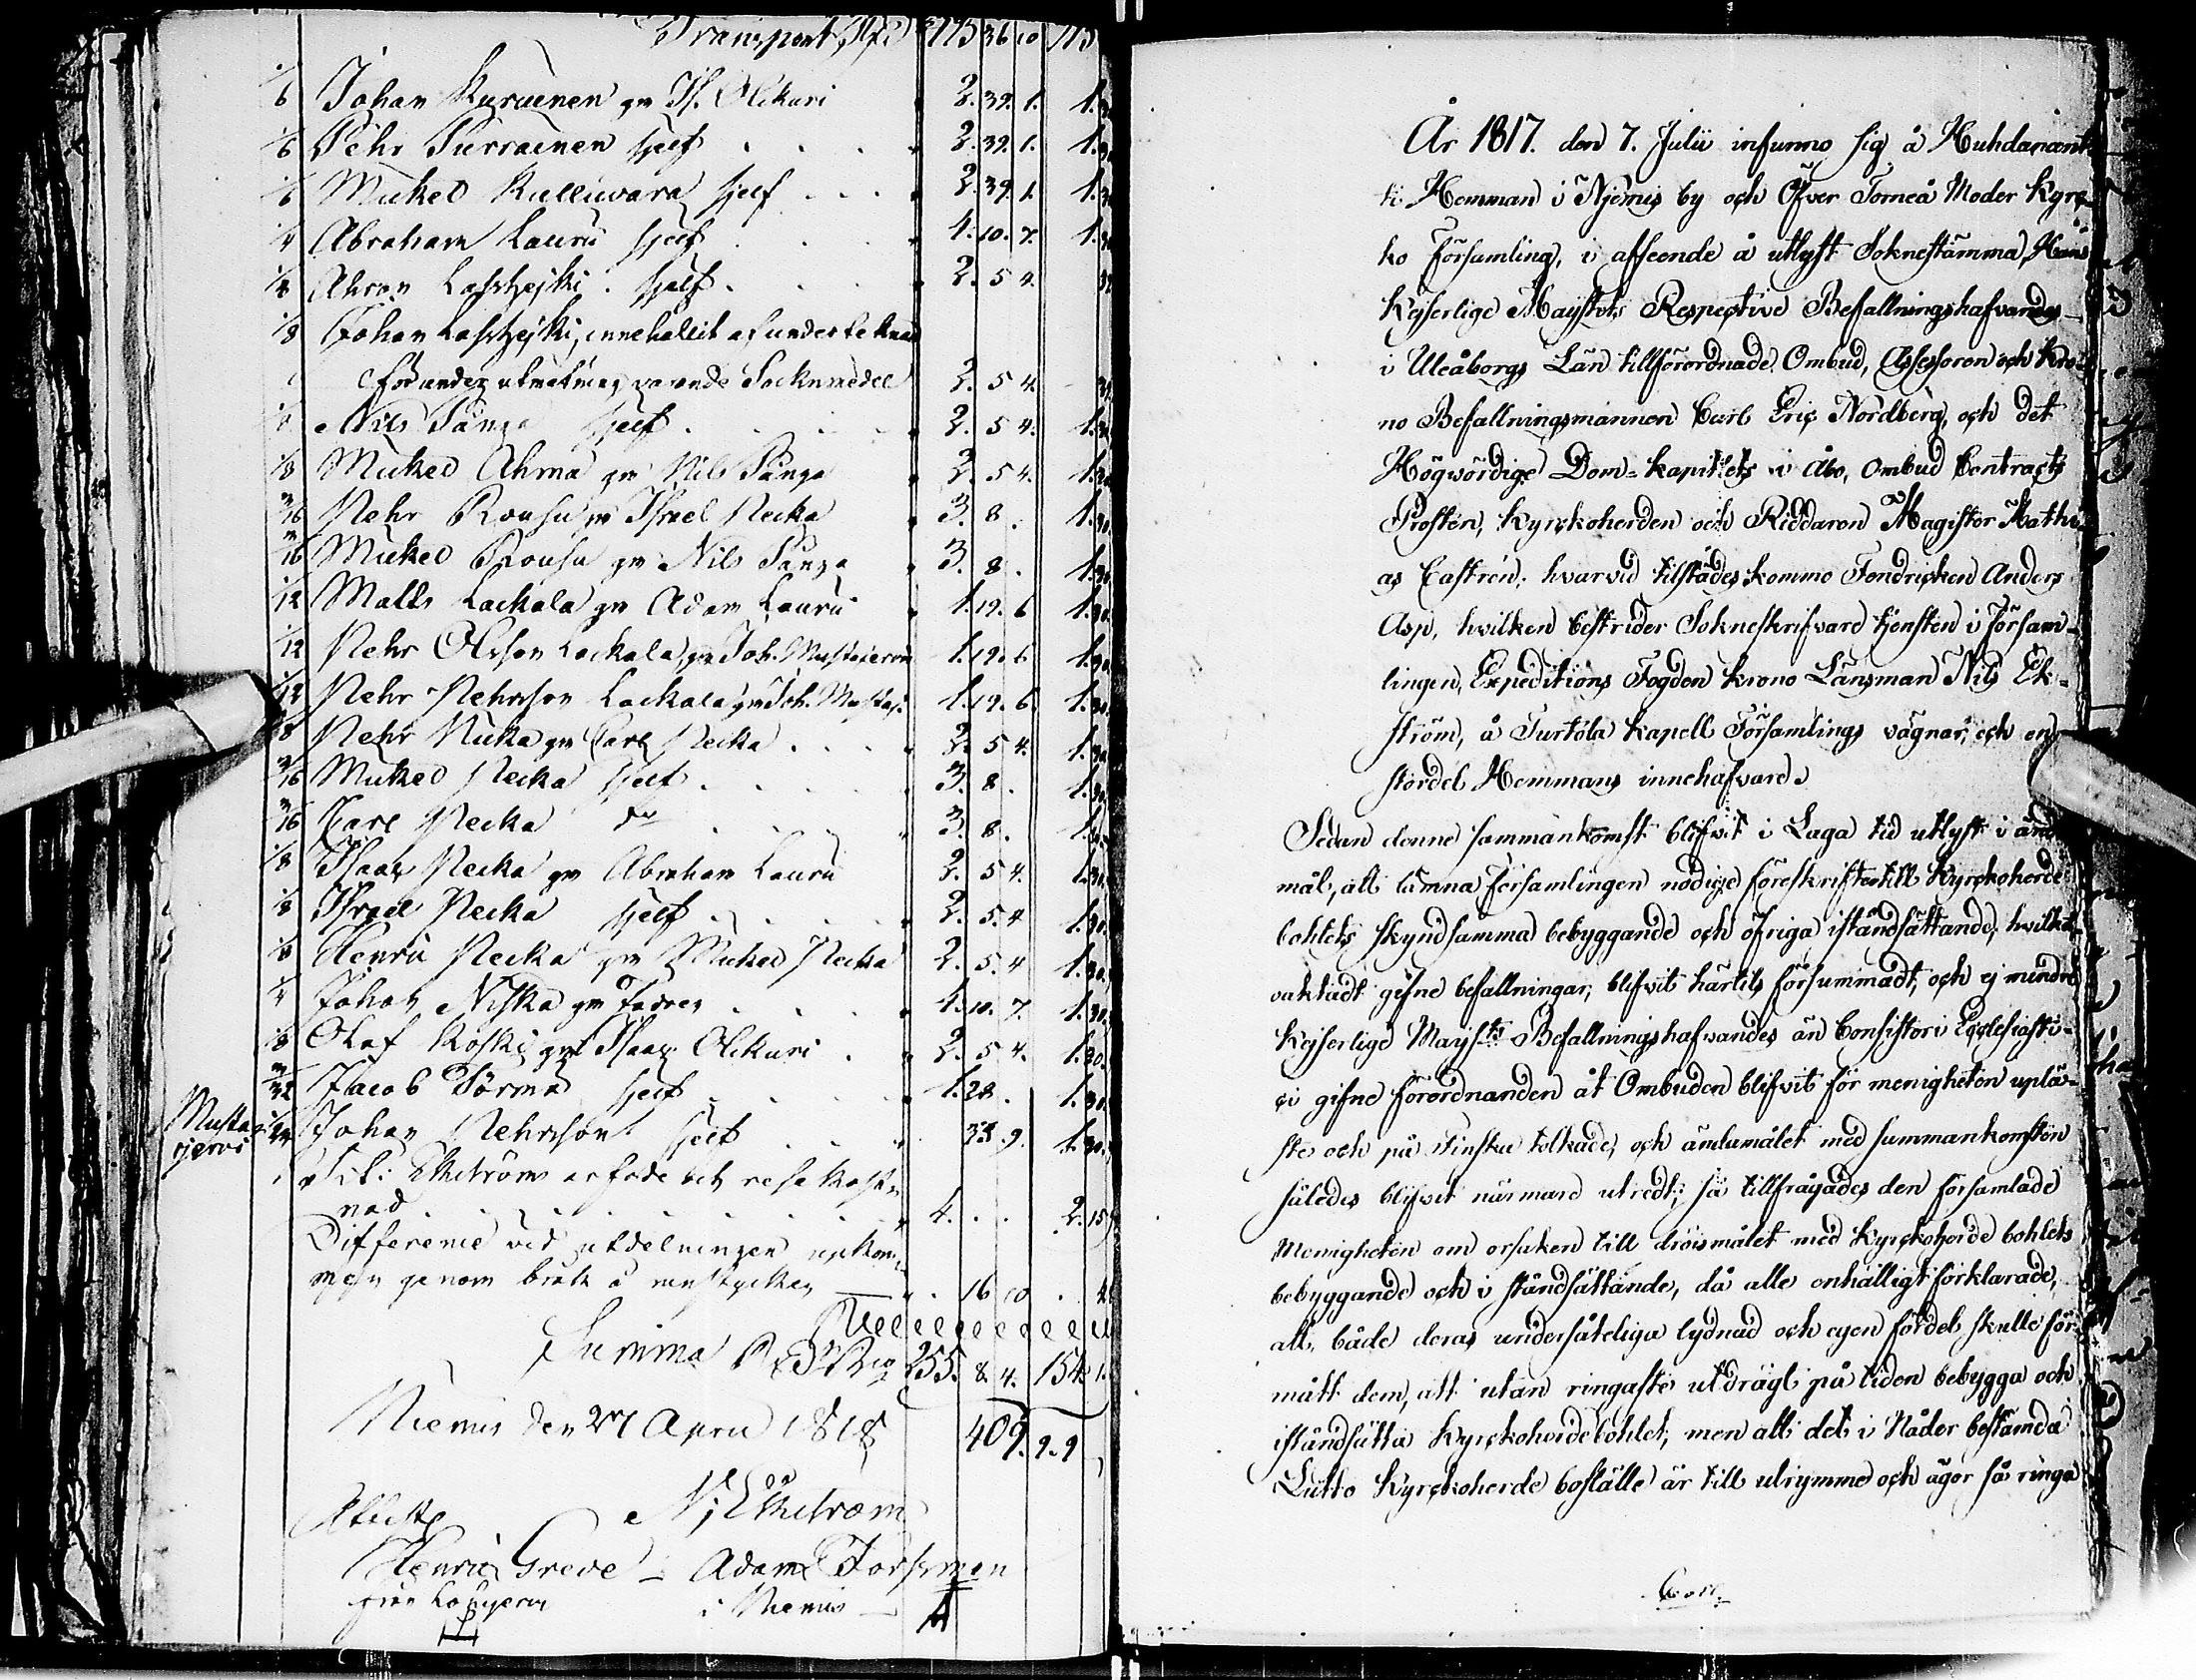 Transport 175 36 10 115
1/6 Johan Kuruenen gm Is. Olkuri 2. 39. 1. 1.
1/6 Pehr Purrainen sjelf 2. 39. 1. 1.
1/6 Mickel Kulluvara sjelf 2. 39. 1. 1.
1/4 Abraham Lauru sjelf 4. 10. 7. 1.
1/8 Ahron sjelf 2. 5 4.
1/8 Johan innehållit af
under utmätning varande Sockn medel 2. 5 4.
Nils Sanga sjelf 2. 5 4. 1.
1/8 Mickel Ahma gm Nils Sanga 2. 5 4. 1.
3/16 Pehr Rousu gm Israel Necka 3. 8. 1.
3/16 Mickel Rousu gm Nils Sanga 3. 8. 1.
1/12 Matts Lackala gm Adam Lauru 1. 19. 6 1.
1/12 Pehr Olsson Lackala gm Joh. Mustajervi 1. 19. 6. 1.
1/12 Pehr Pehrsson Lackala gm Joh. Mustaj. 1. 19. 6. 1.
1/8 Pehr Necka gm Carl Necka 2. 5 4. 1.
3/16 Mickel Necka sjelf 3. 8. 1.
3/16 Carl Necka do 3. 8. 1.
1/8 Isaac Necka gm Abraham Lauru 2. 5 4. 1.
1/8 Israel Necka sjelf 2. 5. 4 1. 30.
1/8 Henric Necka gm Mickel Necka 2. 5. 4 1. 30.
1/4 Johan Niska gm Fadren 4. 10. 7. 1. 30.
1/8 Olof Koski gm Isaac Olkuri 2. 5 4. 1. 30.
3/32 Jacob Törmä sjelf 1. 28. 1. 30.
Mustajervi 1/24 Johan Pehrsson sjelf 33. 9. 1. 30.
Ekström erfordelit resekost
nad 4. 2. 15
Difference vid utdelningen upkom
men genom bråk å runstycken 16 10
Summa 255. 8. 4. 154. 1.
Niemis den 27 April 1818 409. 9. 9
N: Ekström
Henric Greve Adam
från i Niemis
År 1817. den 7. Julii infunno sig å Huhdanant
ti Hemman i Njemis by och Öfver Torneå Moder Kyrc
ko Församling, i afseende å utlyst Soknestämma, Hans
Kejserlige Mayst:ts Respective Befallningshafvandes
i Uleåborgs Län tillförordnade Ombud, Assessoren och Kro
no Befallningsmannen Carl Eric Nordberg, och det
Högvördige Dom=kapitlets i Åbo, Ombud Contracts
Prosten, Kyrckoherden och Riddaren Magister Mathi
as Castrén; hvarvid tilstädes kommo Fendricken Anders
Asp, hvilken bestrider Sokneskrifvare tjensten i Försam-
lingen, Expeditions Fogden Krono Länsman Nils Ek-
ström, å Turtola Kapell Församlings vägnar, och en
stördel Hemmans innehafvare.
Sedan denne sammankomst blifvit i Laga tid utlyst i ända
mål, att lämna Församlingen nödige föreskrifter till Kyrckoherde
bohlets skyndsamma bebyggande och öfriga iståndsättande, hvilket
oaktadt gifne befallningar, blifvit härtils försummadt, och ej mindre
Kejserlige Mayst:ts Befallningshafvandes än Consistorii Ecclesiasti-
ci gifne förordnanden åt Ombuden blifvit för menigheten uplä-
ste och på Finska tolkade, och ändamålet med sammankomsten
således blifvit närmare utredt; så tillfrågades den församlade
Menigheten om orsaken till dröjsmålet med Kyrckoherde bohlets
bebyggande och i ståndsättande, då alle enhälligt förklarade,
att, både deras undersåteliga lydnad och egen fördel skulle för
mått dem, att utan ringaste utdrägt på tiden bebygga och
iståndsätta Kyrckoherdebohlet, men att det i Nåder bestämda
Lutto Kyrckoherde boställe är till utrymme och ägor så ringa